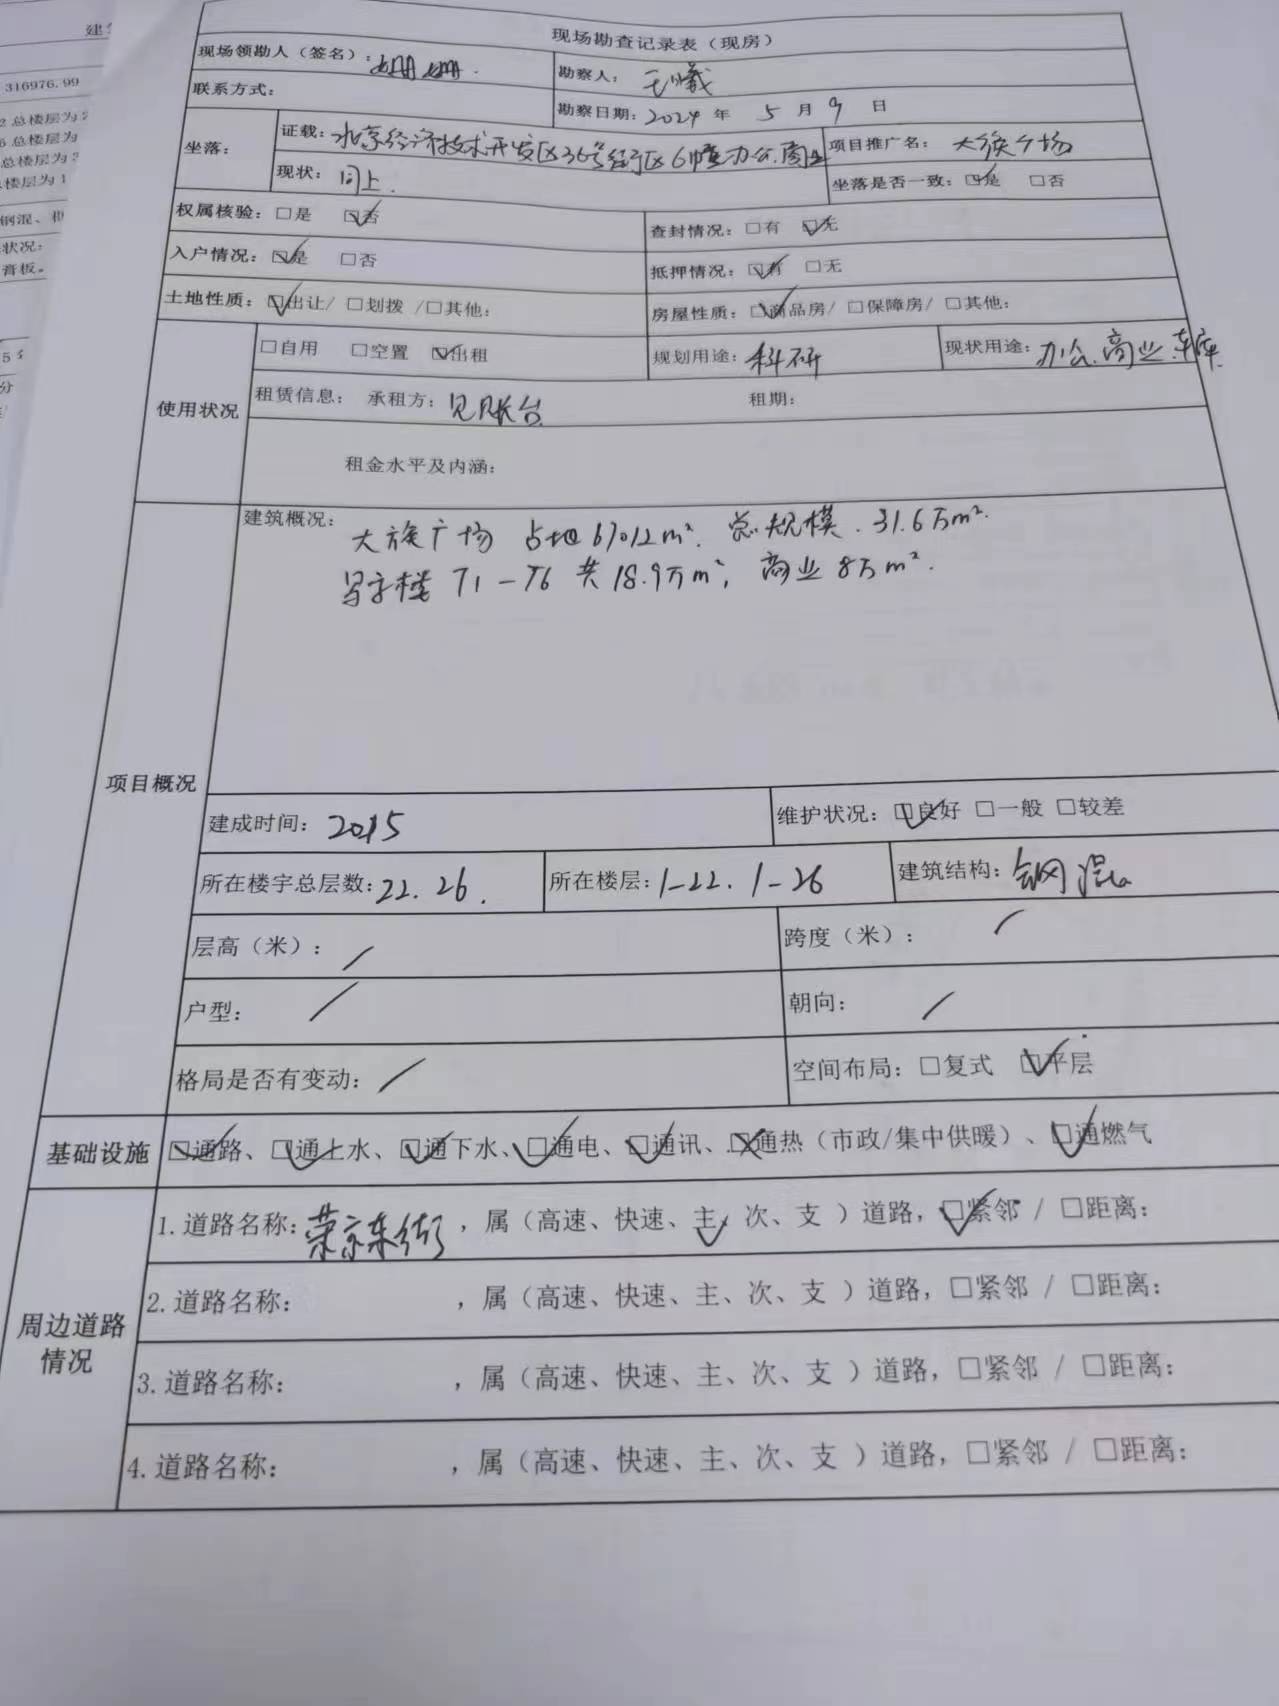 建
316976.99
2 总楼层为 2
6 总楼层为
总楼层为 2
总楼层为 1
钢混、
状况:
膏板。
5
分
现场勘查记录表（现房）
现场领勘人（签名）:
勘察人:
联系方式:
勘察日期: 2024 年 5 月 9 日
坐落:
证载: 北京经济技术开发区36号经行区6幢办公.商业
项目推广名: 大族广场
现状: 同上.
坐落是否一致: ☑是 □否
权属核验: □是 ☑否
查封情况: □有 ☑无
入户情况: ☑是 □否
抵押情况: ☑有 □无
土地性质: ☑出让/ □划拨 /□其他:
房屋性质: ☑商品房/ □保障房/ □其他:
使用状况
□自用 □空置 ☑出租
规划用途: 科研
现状用途: 办公.商业.车库.
租赁信息: 承租方: 见附台
租期:
租金水平及内涵:
项目概况
建筑概况: 大族广场 占地67012m². 总规模.31.6万m².
写字楼 T1-T6 共18.9万m², 商业 8万m².
建成时间: 2015
维护状况: ☑良好 □一般 □较差
所在楼宇总层数: 22. 26.
所在楼层: 1-22. 1-26
建筑结构: 钢混
层高（米）: /
跨度（米）: /
户型: /
朝向: /
格局是否有变动: /
空间布局: □复式 ☑平层
基础设施
☑通路、☑通上水、☑通下水、☑通电、☑通讯、☒通热（市政/集中供暖）、☑通燃气
周边道路情况
1.道路名称: 荣京东街 , 属（高速、快速、主、次、支 ）道路, ☑紧邻 / □距离:
2.道路名称: , 属（高速、快速、主、次、支 ）道路, □紧邻 / □距离:
3.道路名称: , 属（高速、快速、主、次、支 ）道路, □紧邻 / □距离:
4.道路名称: , 属（高速、快速、主、次、支 ）道路, □紧邻 / □距离: